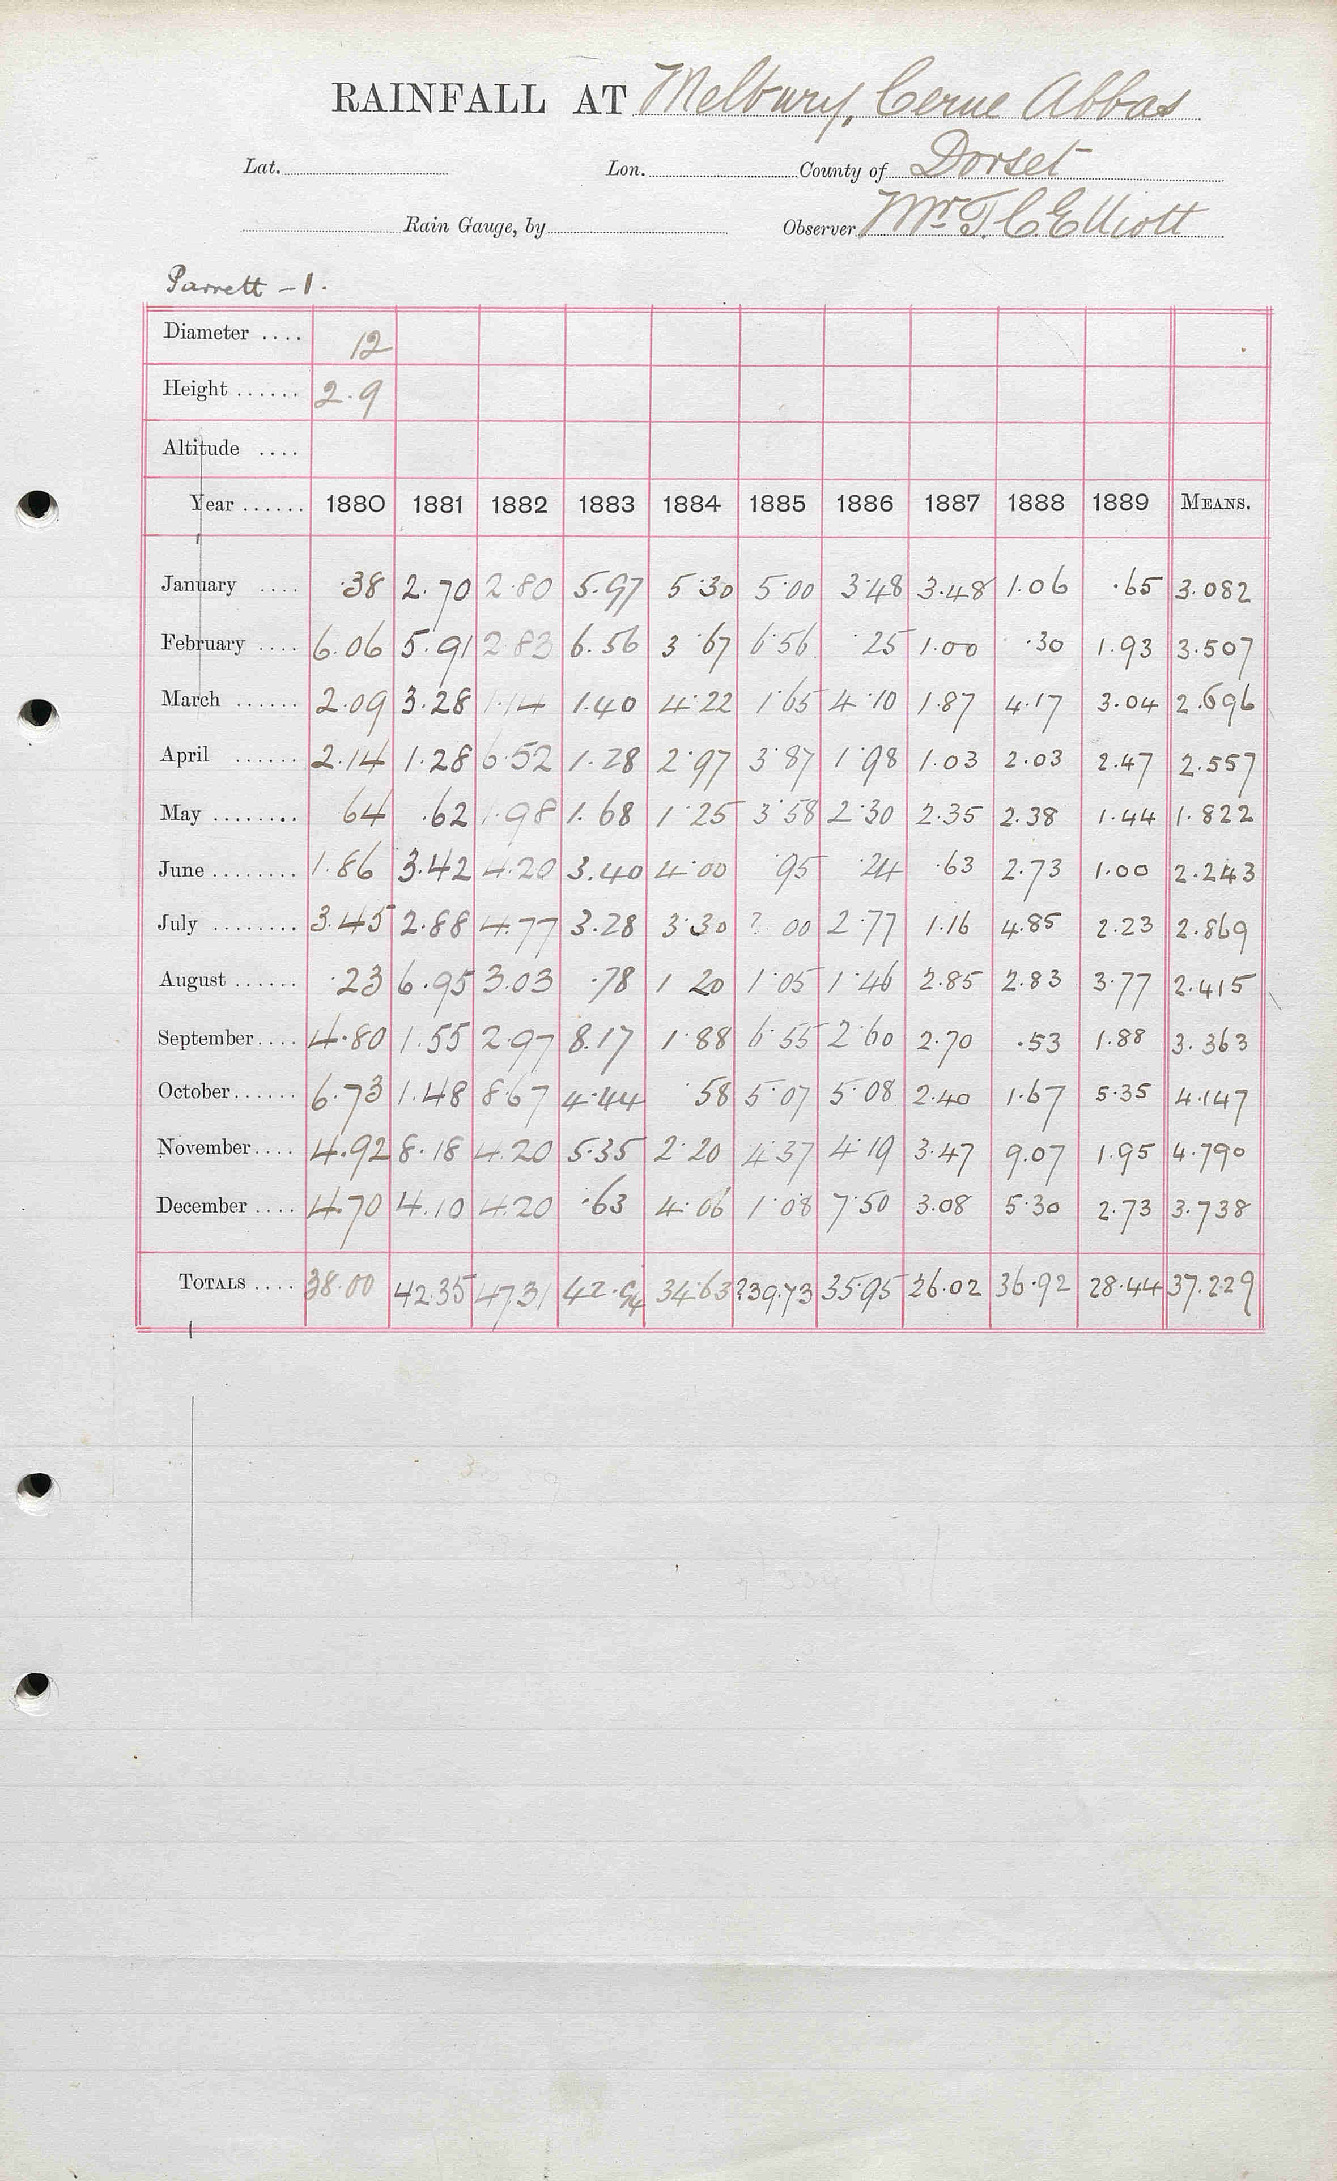 RAINFALL AT Melbury, Cerne Abbas
Lat. Lon. County of Dorset
Rain Gauge, by Observer Mr T. C. Elliott
Parrett - 1.
Diameter .... 12
Height ...... 2.9
Altitude ....
Year ...... 1880 1881 1882 1883 1884 1885 1886 1887 1888 1889 MEANS.
January .... .38 2.70 2.80 5.97 5.30 5.00 3.48 3.48 1.06 .65 3.082
February .... 6.06 5.91 2.83 6.56 3 67 6.56 25 1.00 .30 1.93 3.507
March ...... 2.09 3.28 1.14 1.40 4.22 1.65 4.10 1.87 4.17 3.04 2.696
April ...... 2.14 1.28 6.52 1.28 2.97 3.87 1.98 1.03 2.03 2.47 2.557
May ........ 64 .62 1.98 1.68 1.25 3.58 2.30 2.35 2.38 1.44 1.822
June ........ 1.86 3.42 4.20 3.40 4.00 .95 .24 .63 2.73 1.00 2.243
July ........ 3.45 2.88 4.77 3.28 3.30 ? 00 2.77 1.16 4.85 2.23 2.869
August ...... .23 6.95 3.03 .78 1 20 1.05 1.46 2.85 2.83 3.77 2.415
September .... 4.80 1.55 2.97 8.17 1.88 6.55 2.60 2.70 .53 1.88 3.363
October ...... 6.73 1.48 8.67 4.44 .58 5.07 5.08 2.40 1.67 5.35 4.147
November .... 4.92 8.18 4.20 5.35 2.20 4.37 4.19 3.47 9.07 1.95 4.790
December .... 4.70 4.10 4.20 .63 4.06 1.08 7.50 3.08 5.30 2.73 3.738
TOTALS .... 38.00 42.35 47.31 42.94 34.63 ?39.73 35.95 26.02 36.92 28.44 37.229